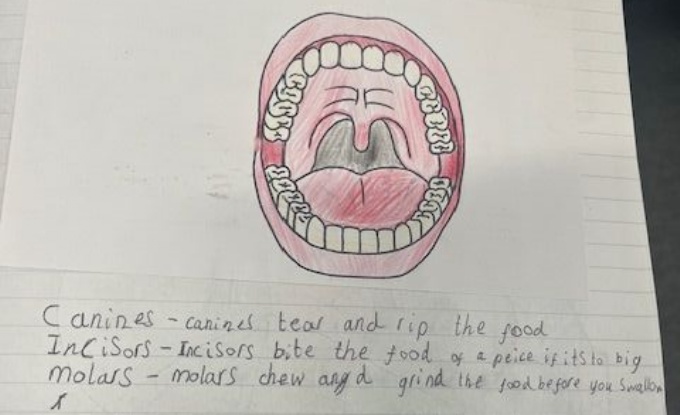 Canines - canines tear and rip the food
Incisors - Incisors bite the food of a peice if its to big
molars - molars chew angd grind the food before you Swallow